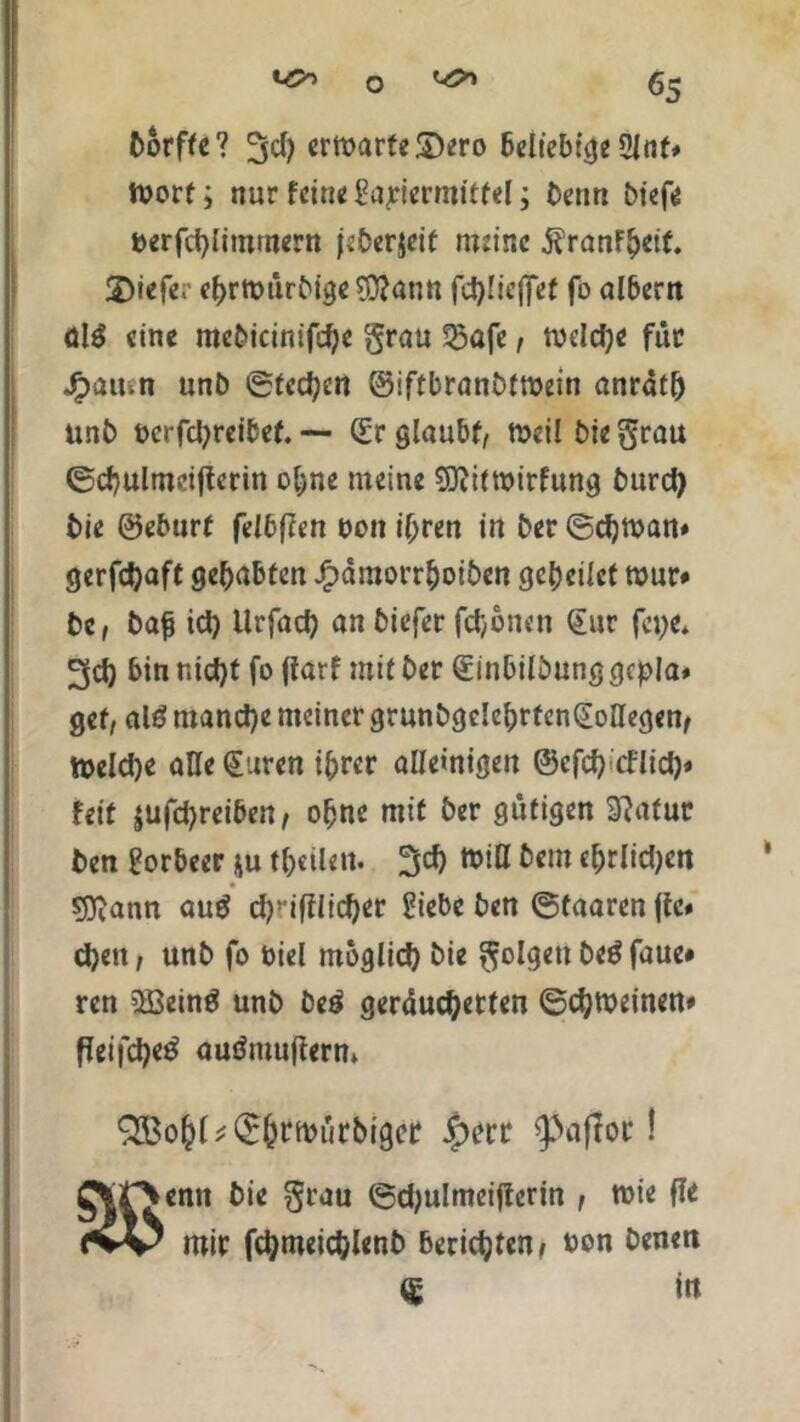 o 65
dörffe? Ich erwarte Dero beliebige Ant-
wort; nur keine Laxiermittel; denn diese
verschlimmern jederzeit meine Krankheit.
Dieser ehrwürdige Mann schliesset so albern
als eine medicinische Frau Base, welche für
Hauen und Stechen Giftbrandtwein anräth
und verschreibet. — Er glaubt, weil die Frau
Schulmeisterin ohne meine Mitwirkung durch
die Geburt selbsten von ihren in der Schwan-
gerschaft gehabten Hämorrhoiden geheilet wur-
de, daß ich Ursach an dieser schönen Cur seye.
Ich bin nicht so stark mit der Einbildung gepla-
get, als manche meiner grundgelehrten Collegen,
welche alle Curen ihrer alleinigen Geschicklich-
keit zuschreiben, ohne mit der gütigen Natur
den Lorbeer zu theilen. Ich will dem ehrlichen
Mann aus christlicher Liebe den Staaren ste-
chen, und so viel möglich die Folgen des saue-
ren Weins und des geräucherten Schweinen-
fleisches ausmustern.
Wohl-Ehrwürbiger Herr Pastor!
Wenn die Frau Schulmeisterin, wie sie
mir schmeichlend berichten, von denen
E in